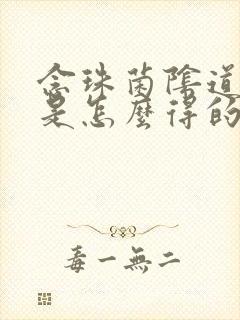 念珠菌陰道
是怎麼得的
毒一無二